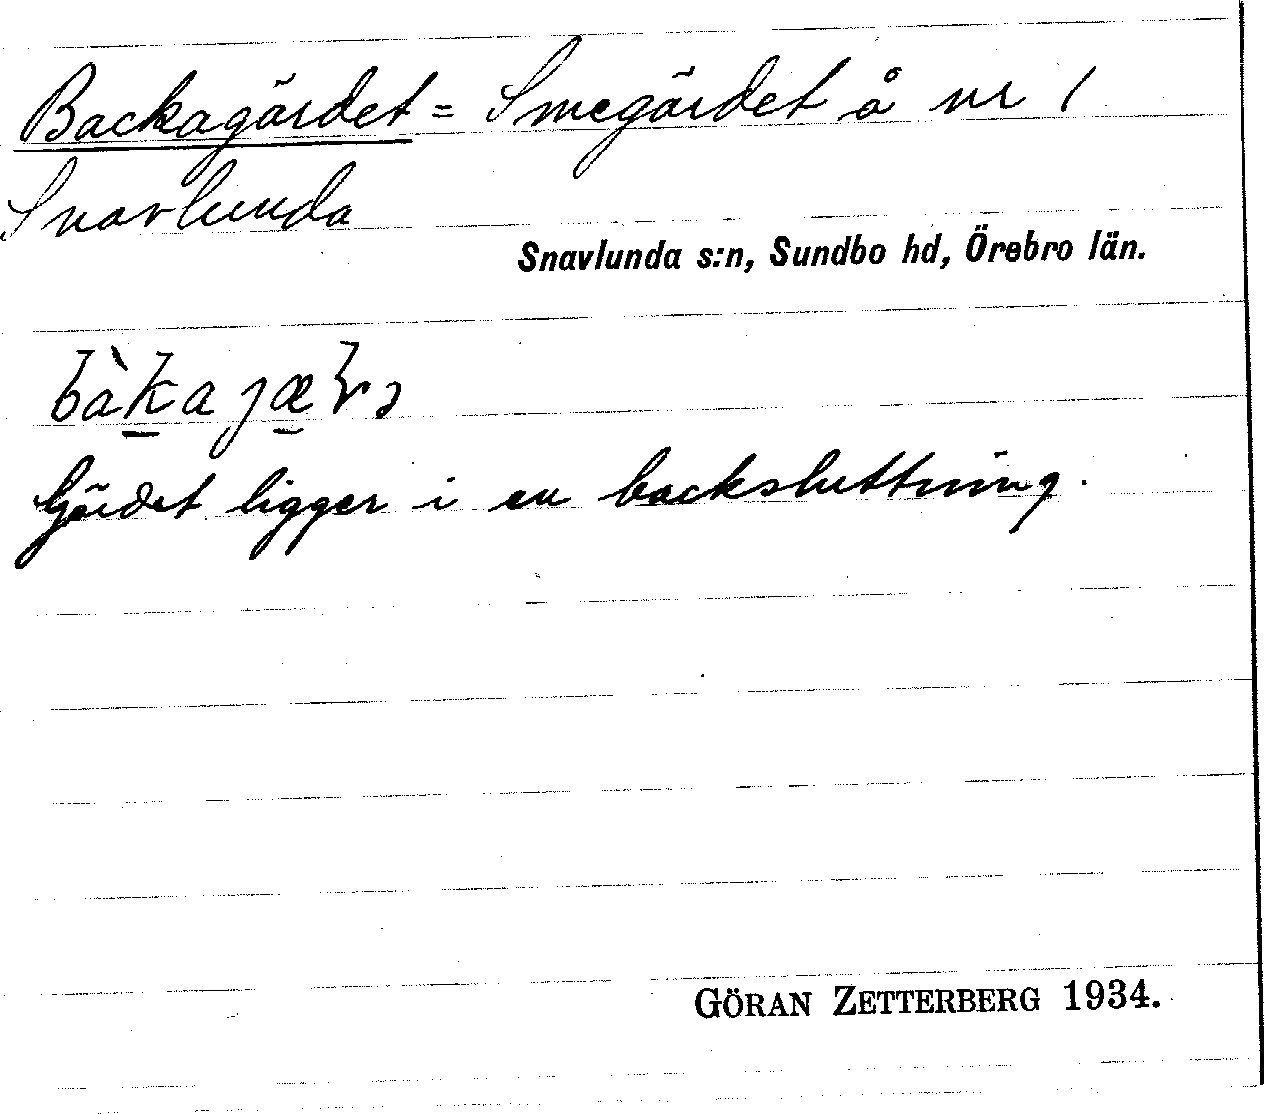 Backagärdet = Smegärdet å nr 1
Snavlunda
Snavlunda s:n, Sundbo hd, Örebro län.
Gärdet ligger i en backsluttning.
GÖRAN ZETTERBERG 1934.